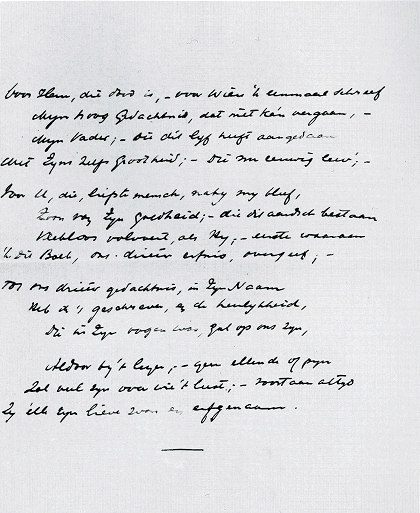 Voor Hem, die dood is, – voor Wien 'k eenmaal schreef
Mijn Hoog Gedachtenis, dat niet kan vergaan, –
Mijn Vader; – Die dit lijf heeft aangedaan
Met Zijns Zelfs Grootheid; – Die nu eeuwig leev'; –
Voor U, die, liefste mensch, nabij mij bleef,
Zoon van Zijn goedheid; – die dit aardsch bestaan
Vlekloos volvoert, als Hij; – eerste waaraan
'k Dit Boek, ons drieër erfnis, overgeef; –
Tot ons drieër gedachtnis, in Zijn Naam
Heb ik 't geschreven, en de heerlijkheid,
Die in Zijn oogen was, zal op ons zijn,
Aldoor bij 't lezen; – geen ellende of pijn
Zal veel zijn voor wie 't leest; – voortaan altijd
Zij elk zijn lieve zoon en erfgenaam.